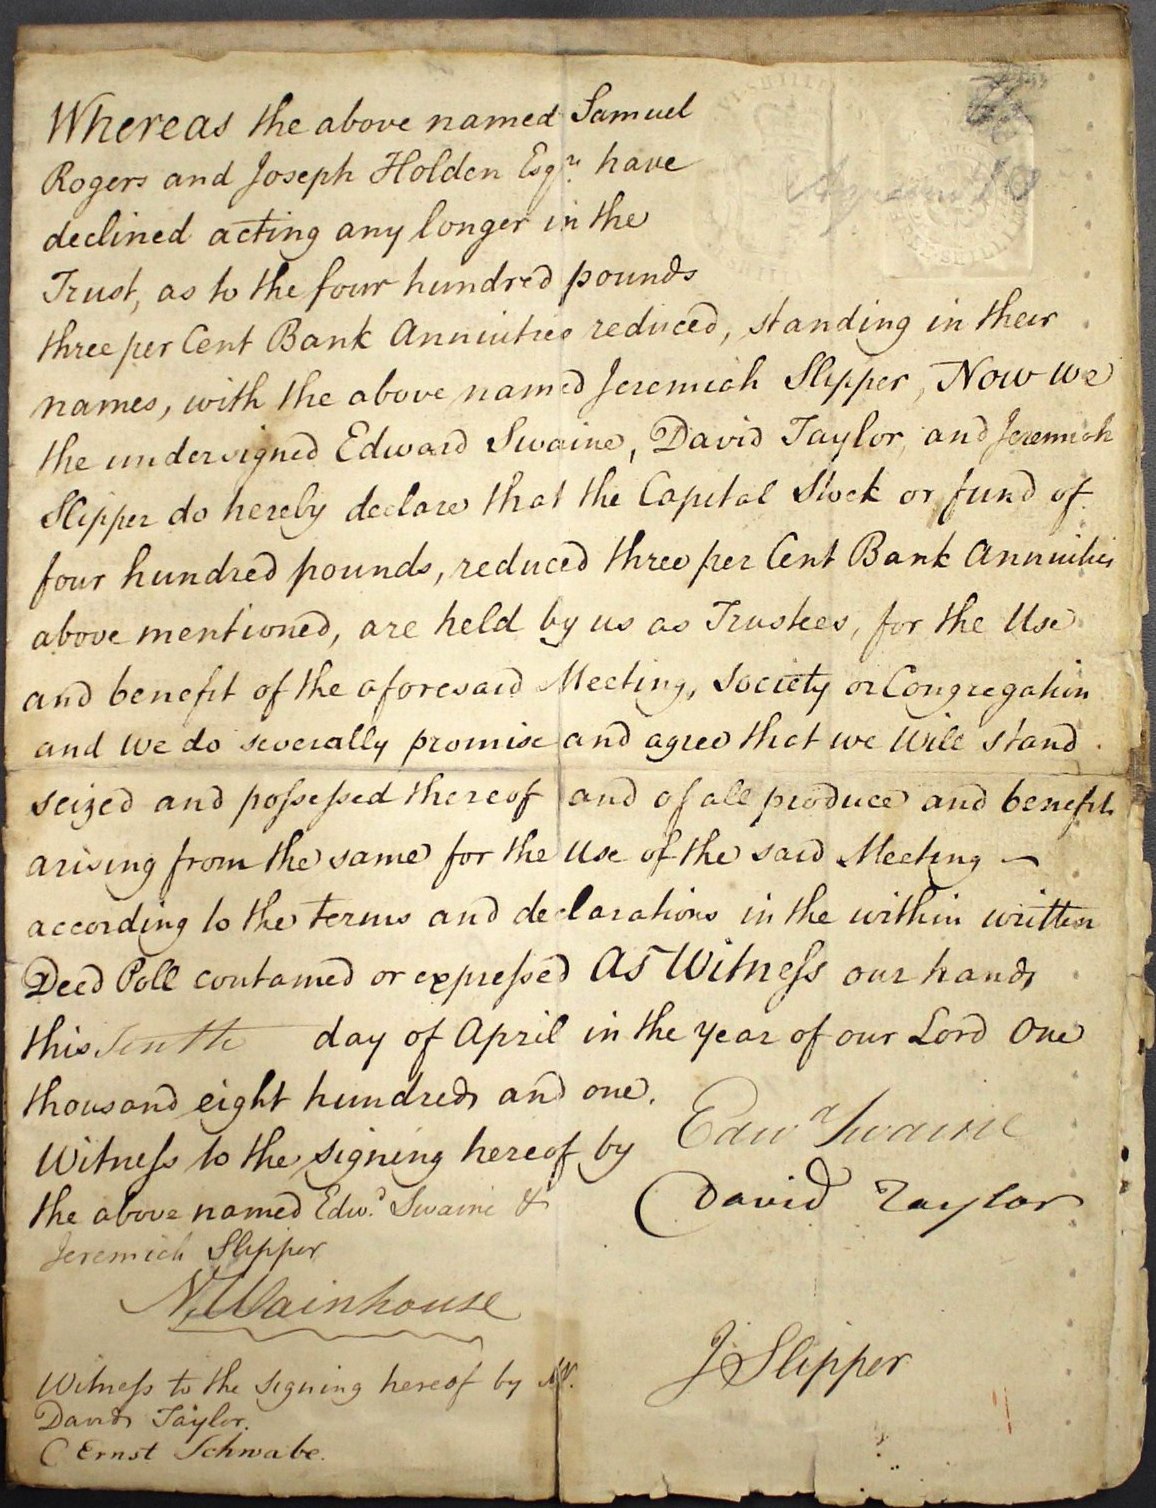 Whereas the above named Samuel
Rogers and Joseph Holden Esqrs. have
declined acting any longer in the
Trust, as to the four hundred pounds
three per Cent Bank Annuities reduced, standing in their
names, with the above named Jeremiah Slipper, Now We
the undersigned Edward Swaine, David Taylor, and Jeremiah
Slipper do hereby declare that the Capital Stock or fund of
four hundred pounds, reduced three per Cent Bank Annuities
above mentioned, are held by us as Trustees, for the Use
and benefit of the aforesaid Meeting, Society or Congregation
and We do severally promise and agree that we Will stand
seized and possessed thereof and of all produce and benefit
arising from the same for the Use of the said Meeting —
according to the terms and declarations in the within written
Deed Poll contained or expressed As Witness our hands
this day of April in the year of our Lord One
thousand eight hundred and one.
Edwd Swaine
Witness to the signing hereof by
the above named Edwd. Swaine &
David Taylor
Jeremiah Slipper
N. Wainhouse
J Slipper
Witness to the signing hereof by Mr.
David Taylor.
C Ernst Schwabe.